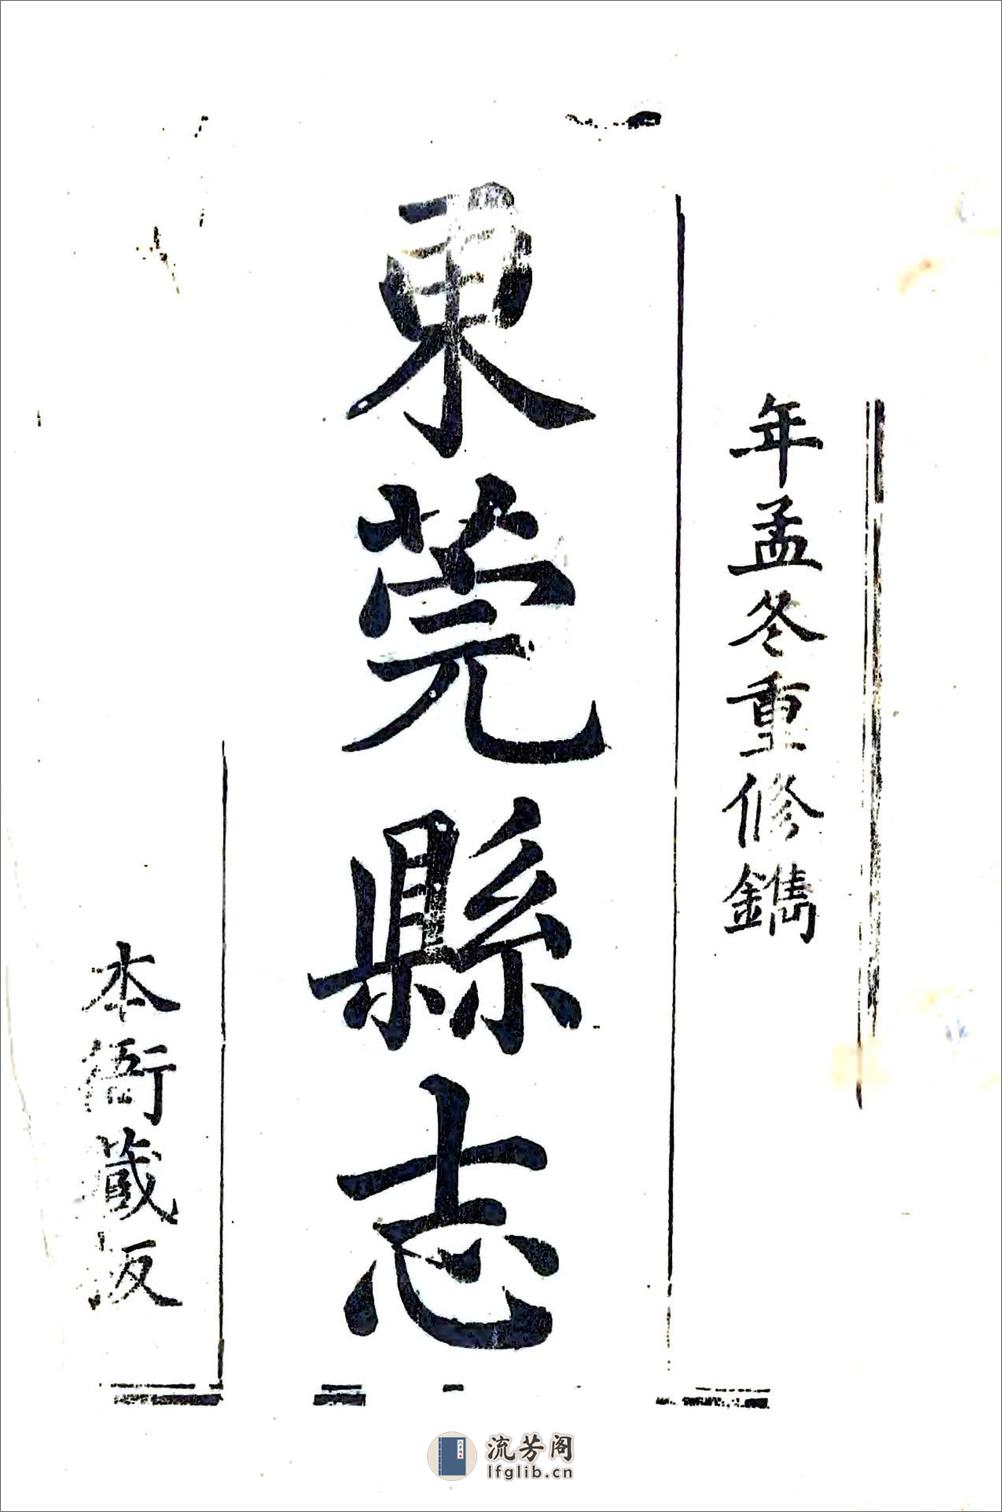 年孟冬重修鐫
東莞縣志
本衙藏板
流芳阁
lfglib.cn